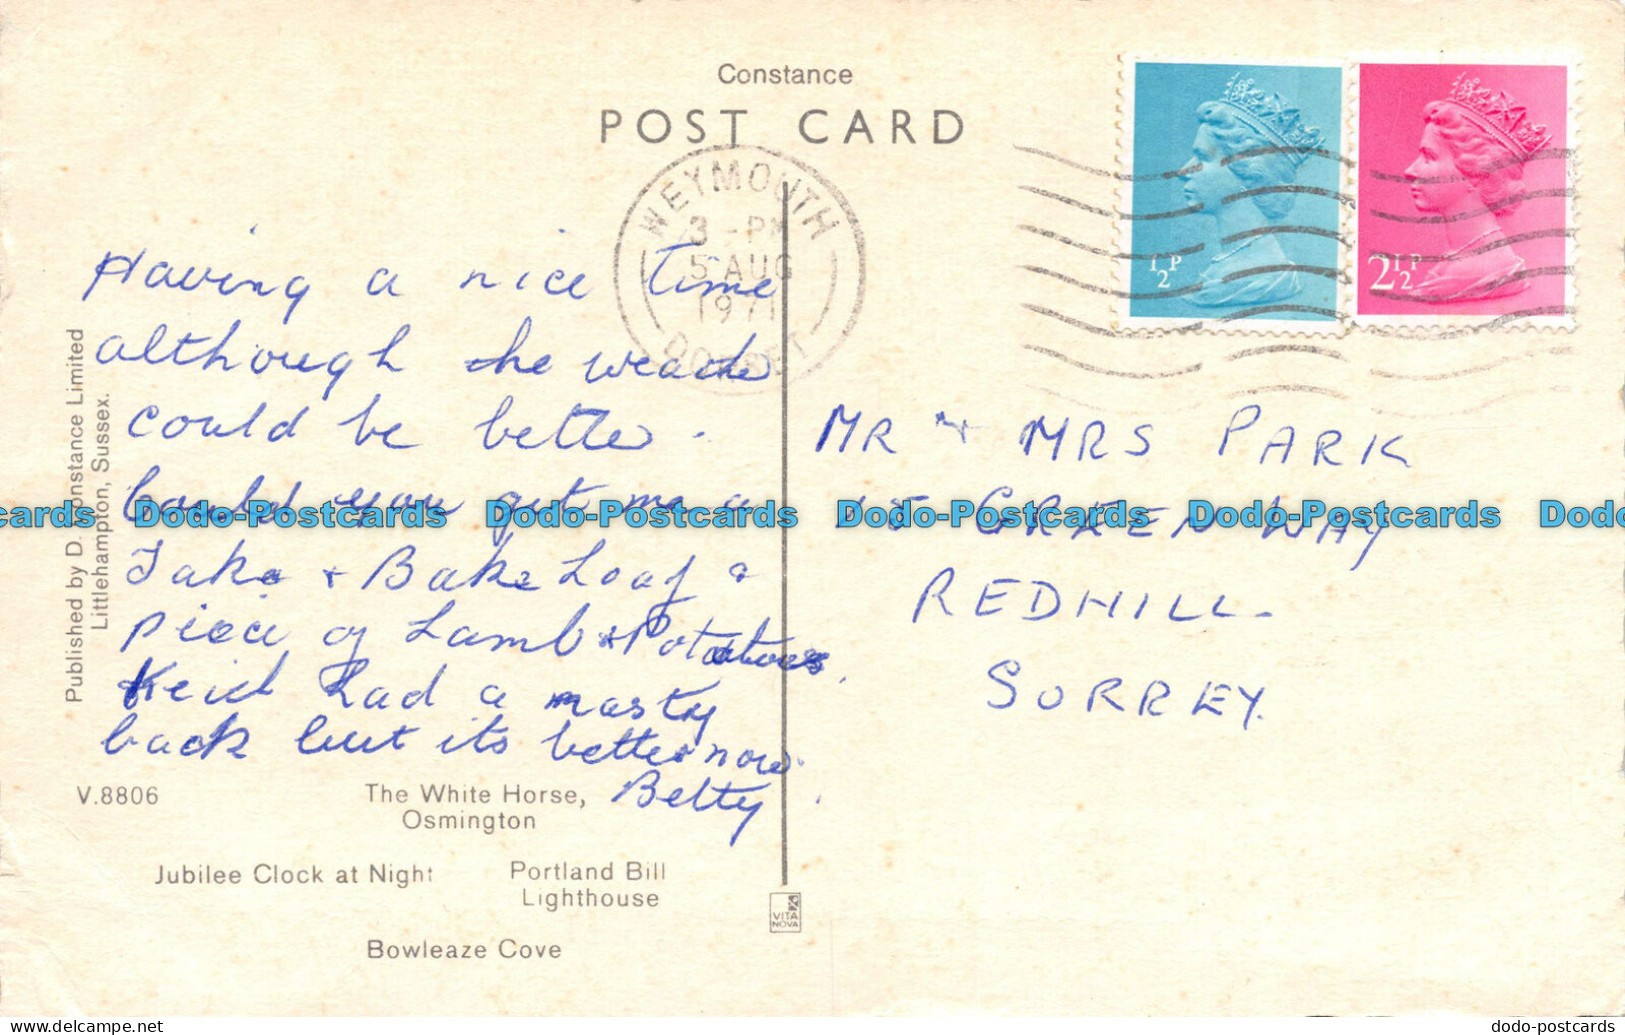 Constance
POST CARD
WEYMOUTH
3 - PM
5 AUG
1971
DORSET
½P
2½P
Having a nice time
although the weather
could be better.
Could you get me a
Take & Bake Loaf a
piece of Lamb & Potatoes.
Keith had a nasty
back but its better now.
Betty
MR & MRS PARK
15 GREEN WAY
REDHILL.
SORREY.
Published by D. Constance Limited
Littlehampton, Sussex.
V.8806
The White Horse,
Osmington
Jubilee Clock at Night
Portland Bill
Lighthouse
Bowleaze Cove
VITA
NOVA
cards Dodo-Postcards Dodo-Postcards Dodo-Postcards Dodo-Postcards Dodo
www.delcampe.net
dodo-postcards